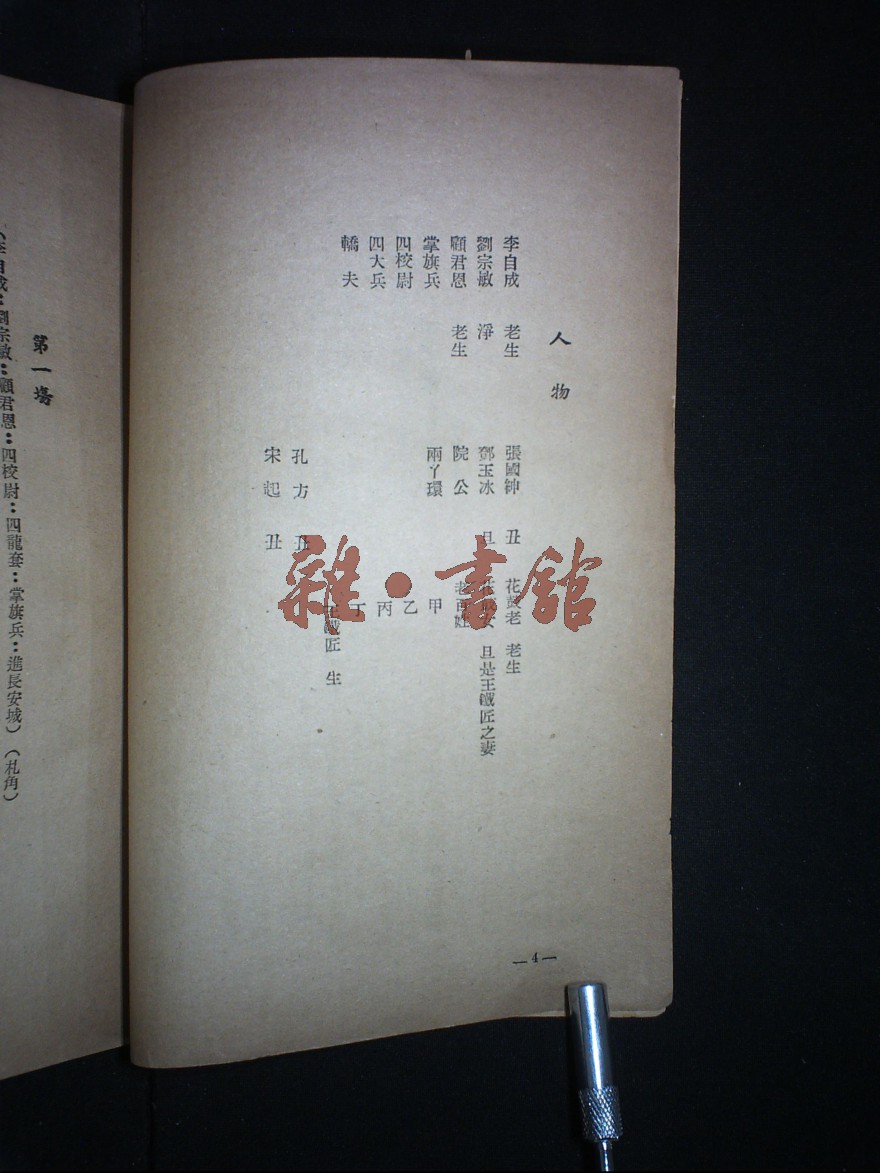 人物
李自成 老生 張國紳 丑 花鼓老 老生
劉宗敏 淨 鄧玉冰 旦 花鼓女 旦是王鐵匠之妻
顧君恩 老生 院公 老百姓
掌旗兵 兩丫環 甲
四校尉 乙
四大兵 丙
轎夫 丁
王鐵匠 生
孔方 丑
宋起 丑
—4—
第一場
(李自成：劉宗敏：顧君恩：四校尉：四龍套：掌旗兵：進長安城)(札角)
雜·書館